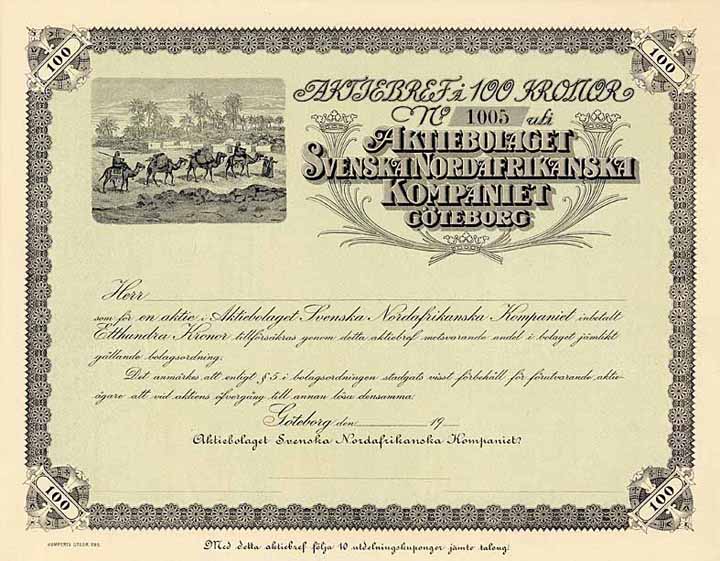 100
100
AKTIEBREF à 100 KRONOR
No 1005 uti
AKTIEBOLAGET
SVENSKA NORDAFRIKANSKA
KOMPANIET
GÖTEBORG
Herr
som för en aktie i Aktiebolaget Svenska Nordafrikanska Kompaniet inbetalt
Etthundra Kronor tillförsäkras genom detta aktiebref motsvarande andel i bolaget jämlikt
gällande bolagsordning.
Det anmärkes att enligt § 5 i bolagsordningen stadgats visst förbehåll för förutvarande aktie-
ägare att vid aktiens öfvergång till annan lösa densamma.
Göteborg den 19
Aktiebolaget Svenska Nordafrikanska Kompaniet.
100
100
Med detta aktiebref följa 10 utdelningskuponger jämte talong.